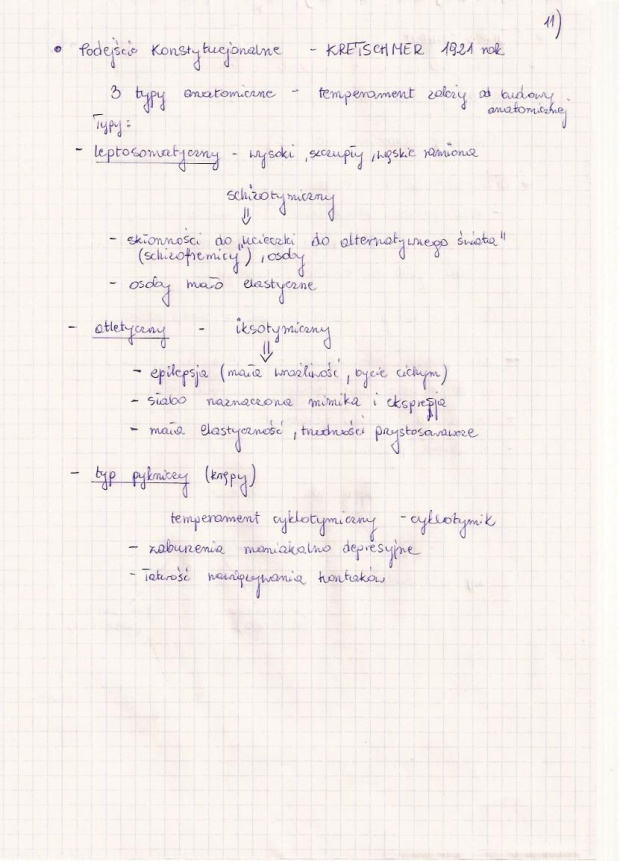 11)
• Podejście Konstytucjonalne - KRETSCHMER 1921 rok
3 typy anatomiczne - temperament zależy od budowy
anatomicznej.
Typy:
- leptosomatyczny - wysoki, szczupły, wąskie ramiona
schizotymiczny
⇓
- skłonności do „ucieczki do alternatywnego świata"
(schizofrenicy), osoby
- osoby mało elastyczne
- atletyczny - iksotymiczny
⇓
- epilepsja (mała wrażliwość, bycie cichym)
- słabo naznaczona mimika i ekspresja
- mała elastyczność, trudności przystosawawcze
- typ pykniczy (krępy)
temperament cyklotymiczny - cyklotymik
- zaburzenia maniakalno depresyjne
- łatwość nawiązywania kontaków